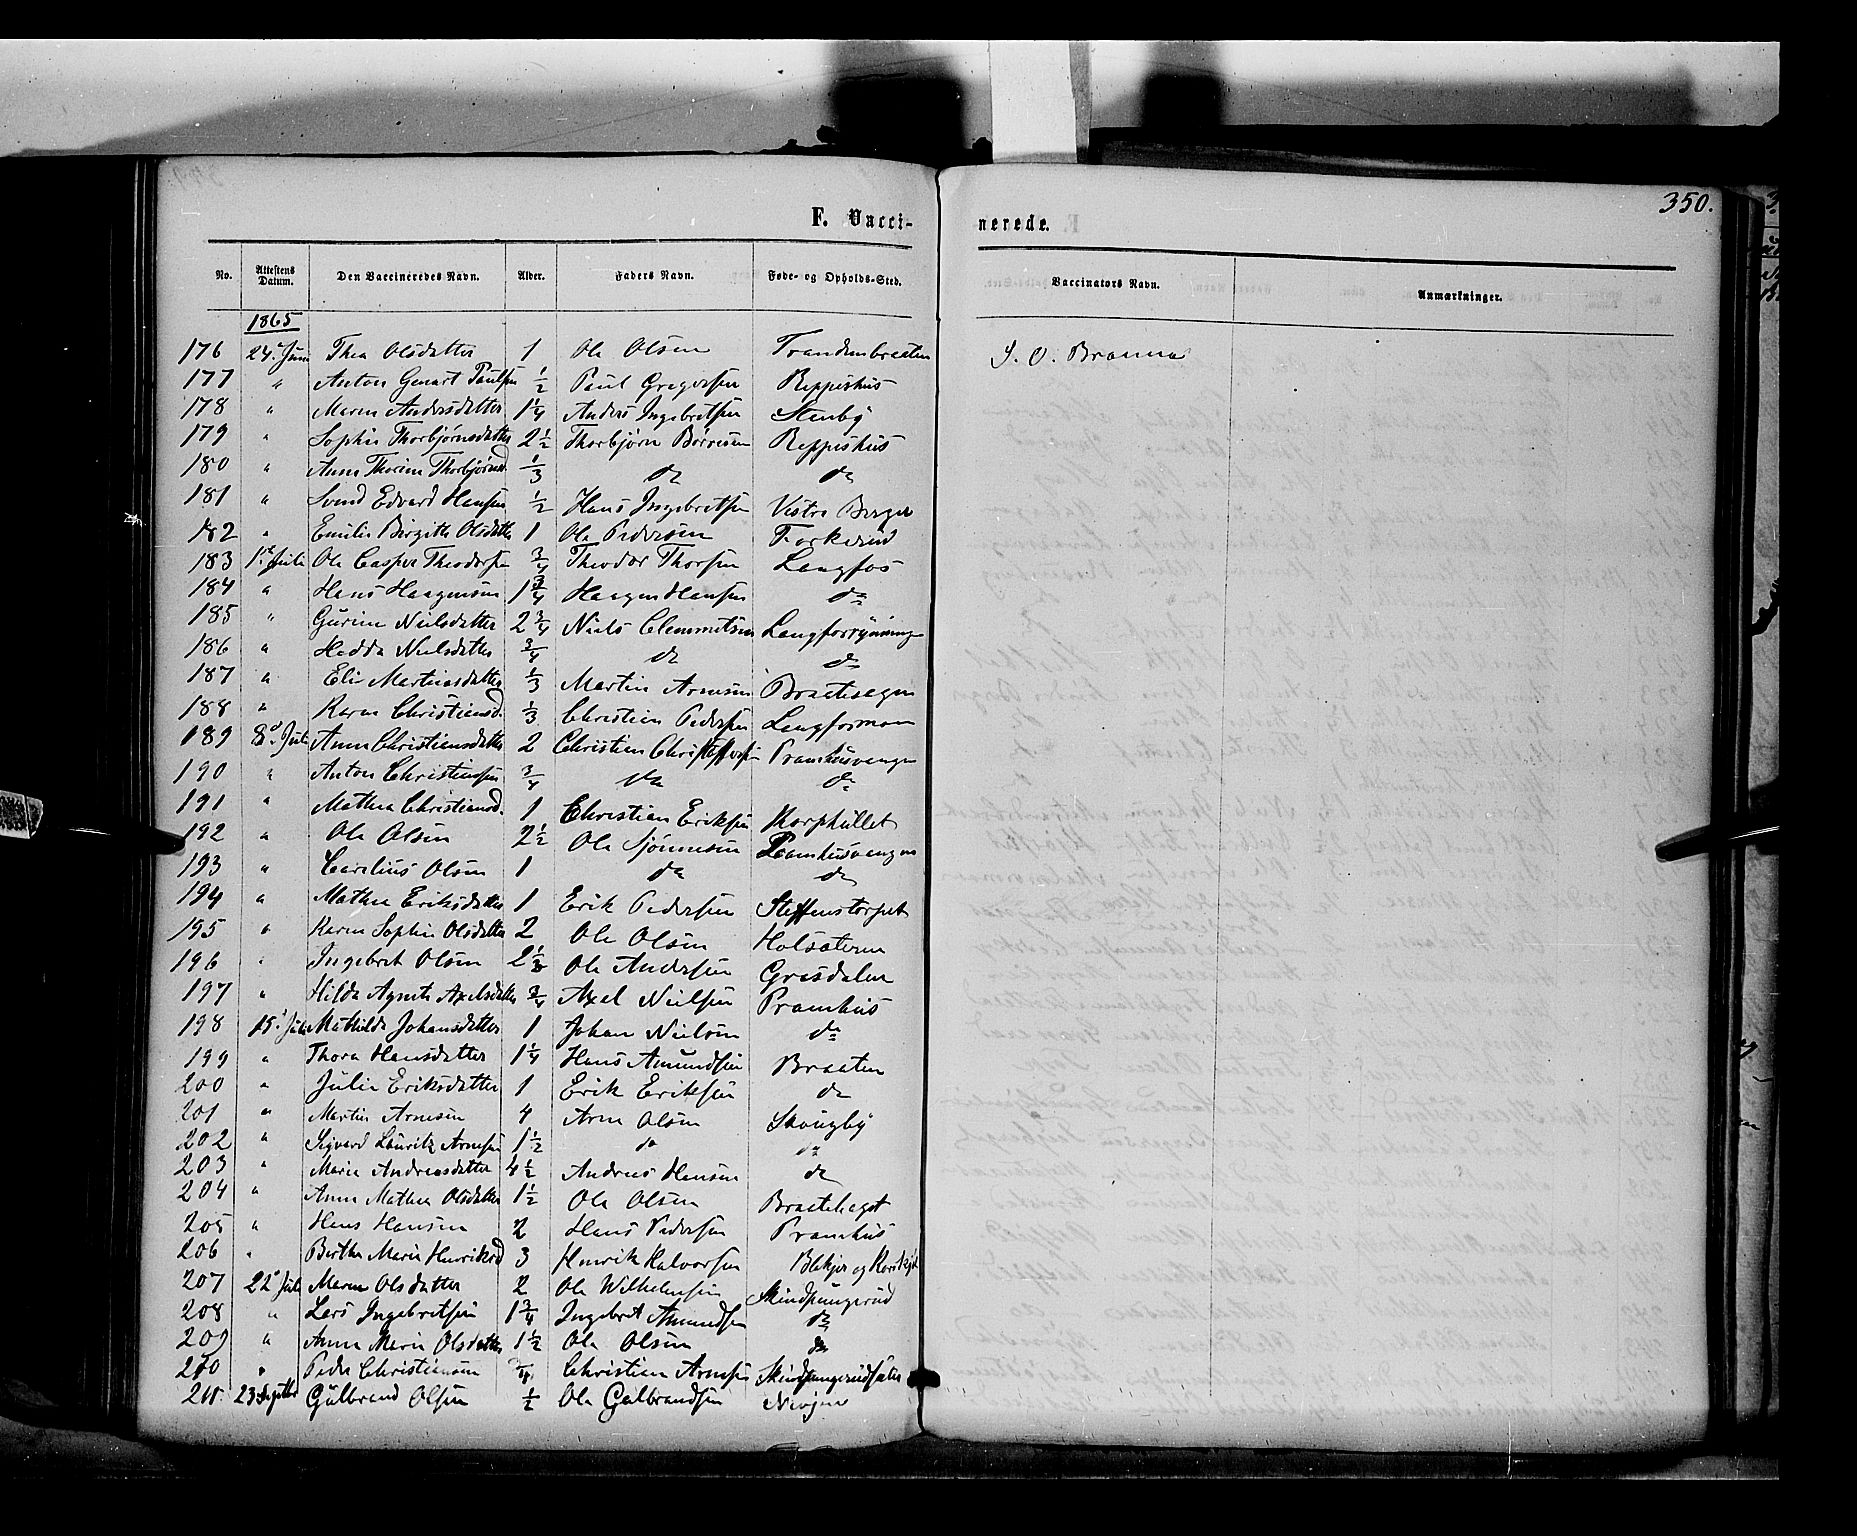 350.
F. Vacci-nerede.
No. Attestens Datum. Den Vaccineredes Navn. Alder. Faders Navn. Føde- og Opholds-Sted. Vaccinators Navn. Anmærkninger.
1865
176 24. Juni Thea Olsdatter 1 Ole Olsen Trandembraaten
177 " Anton Paulsen ½ Paul Gregersen Reppeshus
178 " Maren Andersdatter 1¼ Anders Ingebretsen Stenby
179 " Sophie Thorbjørnsdatter 2½ Thorbjørn Børresen Reppeshus
180 " Anne Thorine Thorbjørnsd. ⅓ do do
181 " Svend Edvard Hansen ½ Hans Ingebretsen Vestre Berger
182 " Emilie Birgitte Olsdatter 1 Ole Pedersen
183 1. Juli Ole Casper Theodorsen ¾ Theodor Thorsen Langfos
184 " Hans Haagensen 1¾ Haagen Hansen do
185 " Gurine Nielsdatter 2¾ Niels Clemmetsen
186 " Hedda Nielsdatter ¾ do do
187 " Eli Martinsdatter ⅓ Martin Arnesen
188 " Karen Christiansd. ⅓ Christian Pedersen
189 8. Juli Anne Christiansdatter 2 Christian Christoffersen Pramhusvangen
190 " Anton Christiansen ¾ do do
191 " Mathea Christiansd. 1 Christian Eriksen Korphullet
192 " Ole Olsen 2½ Ole Sjønnesen Pramhusvangen
193 " Carelius Olsen 1 do do
194 " Mathea Eriksdatter 1 Erik Pedersen Steffenstorpet
195 " Karen Sophie Olsdatter 2 Ole Olsen Holsæteren
196 " Ingebret Olsen Ole Andersen Græsdalen
197 " Hilda Agnete Axelsdatter ¾ Axel Nielsen Pramhus
198 15. Juli Mathilda Johansdatter 1 Johan Nielsen do
199 " Thora Hansdatter 1¼ Hans Amundsen Braaten
200 " Julie Eriksdatter 1 Erik Eriksen do
201 " Martin Arnesen 4 Arne Olsen Skougby
202 " Sigvard Lauritz Arnesen 1½ do do
203 " Marie Andreasdatter 4½ Andreas Hansen do
204 " Anne Mathea Olsdatter 1½ Ole Olsen Braatehaget
205 " Hans Hansen 2 Hans Pedersen Pramhus
206 " Berthe Marie Henriksd 3 Henrik Halvorsen
207 22. Juli Maren Olsdatter 2 Ole Wilhelmsen Skindpungerud
208 " Lars Ingebretsen 1¾ Ingebret Amundsen do
209 " Anne Marie Olsdatter 1½ Ole Olsen do
210 " Peder Christiansen ¾ Christian Arnesen
211. 23 Septbr Gulbrand Olsen ½ Ole Gulbrandsen